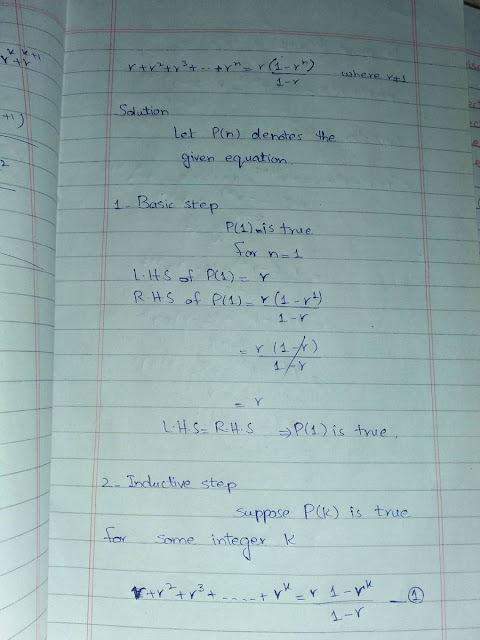 r+r²+r³+...+rⁿ = r(1-rⁿ)/1-r where r≠1
Solution
Let P(n) denotes the
given equation.
1- Basic step
P(1) is true
for n=1
L.H.S of P(1) = r
R.H.S of P(1) = r(1-r¹)/1-r
= r(1-r)/1-r
= r
L.H.S = R.H.S ⇒ P(1) is true.
2- Inductive step
suppose P(k) is true
for some integer k
r+r²+r³+.....+rᵏ = r 1-rᵏ/1-r — ①